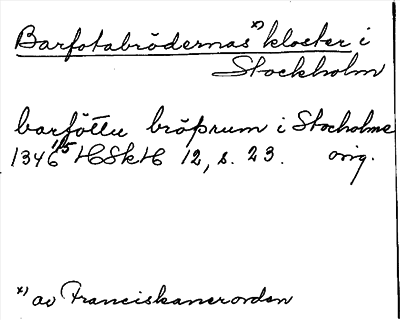 Barfotabrödernas x) kloster i
Stockholm
barföttu bröþrum i Stocholme
1346 1/5 HSkH 12, s. 23. orig.
x) av Franciskanerorden